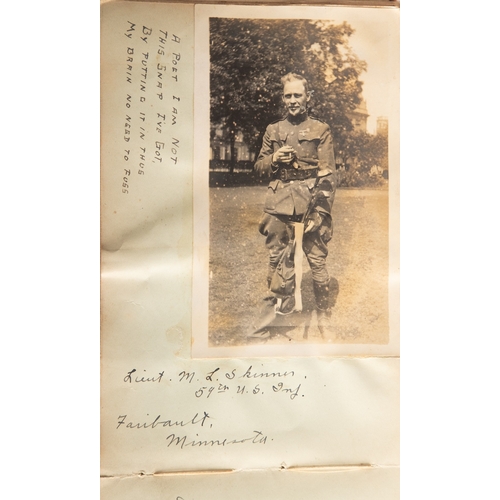 A POET I AM NOT
THIS SNAP I'VE GOT,
BY PUTTING IT IN THUS
MY BRAIN NO NEED TO FUSS
Lieut. M. L. Skinner.
54th U.S. Inf.
Faribault,
Minnesota.